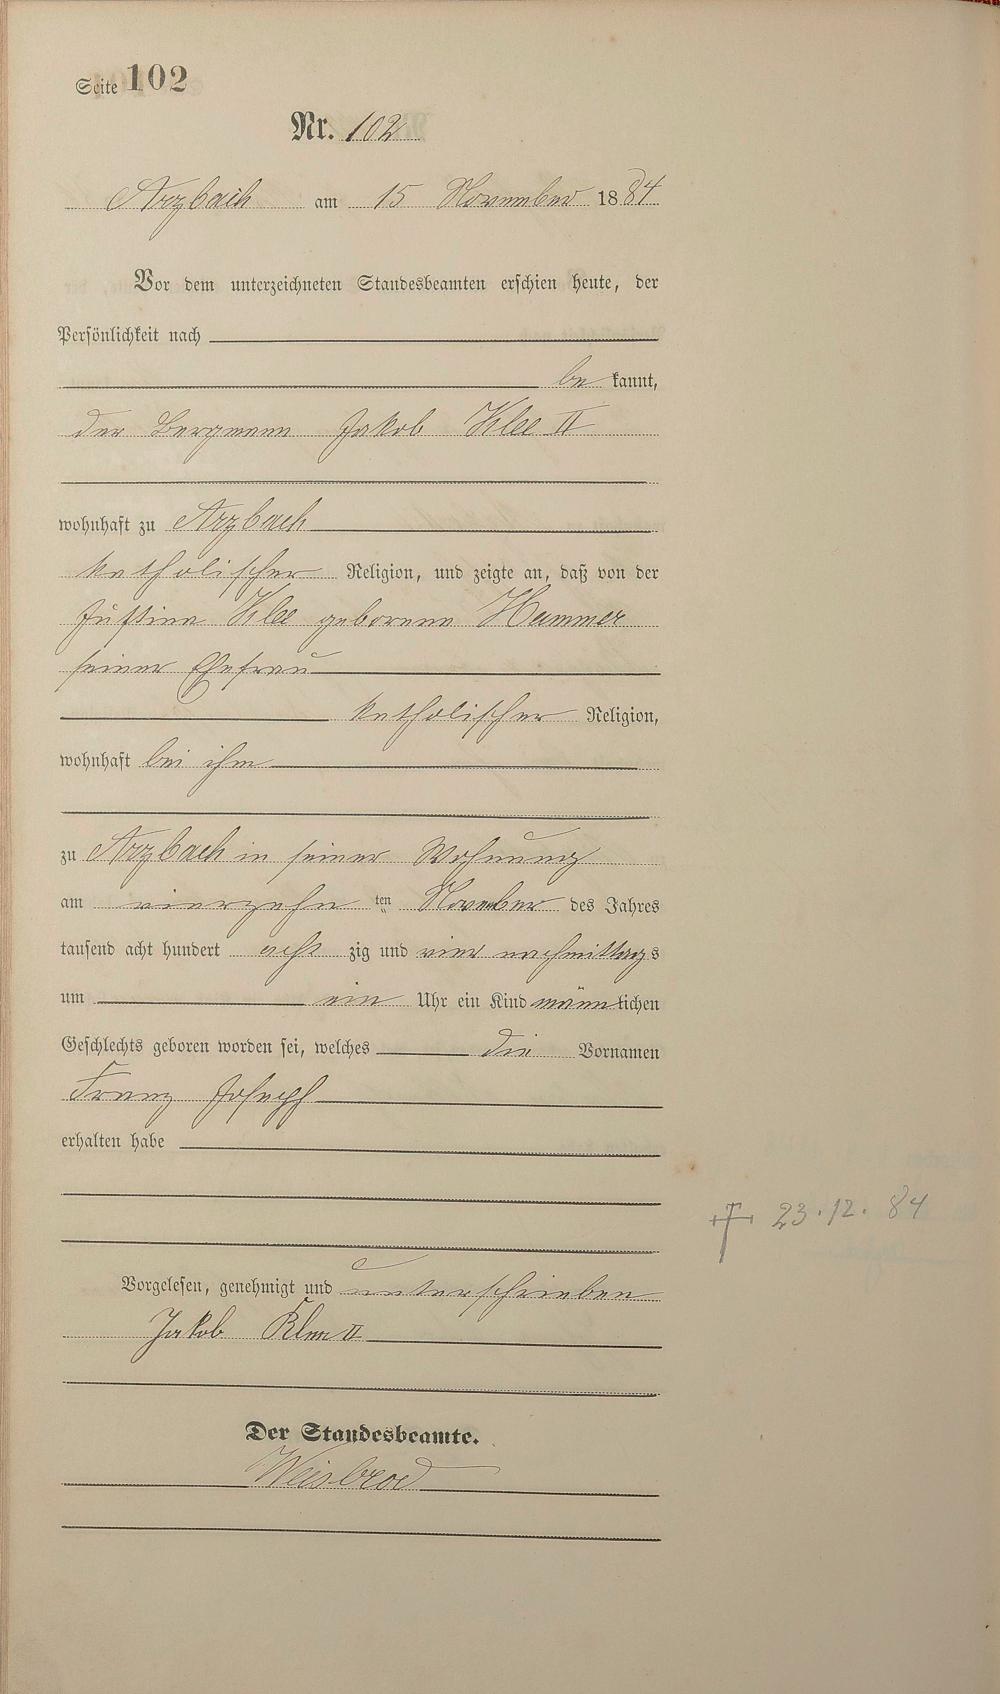 Seite 102
Nr. 102
Arzbach am 15 November 1884
Vor dem unterzeichneten Standesbeamten erschien heute, der
Persönlichkeit nach
be kannt,
der Bergmann Jakob Klee II
wohnhaft zu Arzbach
katholischer Religion, und zeigte an, daß von der
Justina Klee geborene Hammer
seiner Ehefrau
katholischer Religion,
wohnhaft bei ihm
zu Arzbach in seiner Wohnung
am vierzehn ten November des Jahres
tausend acht hundert acht zig und vier nachmittags
um ein Uhr ein Kind männlichen
Geschlechts geboren worden sei, welches die Vornamen
Franz Joseph
erhalten habe
† 23.12.84
Vorgelesen, genehmigt und unterschrieben
Jakob Klee II
Der Standesbeamte.
Weisbrod